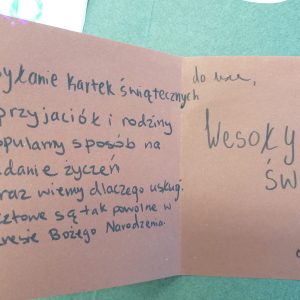 yłanie kartek świątecznych
przyjaciół i rodziny
opularny sposób na
danie życzeń
raz wiemy dlaczego usługi
cztowe są tak powolne w
resie Bożego Narodzenia.
do
Wesoły
ŚW